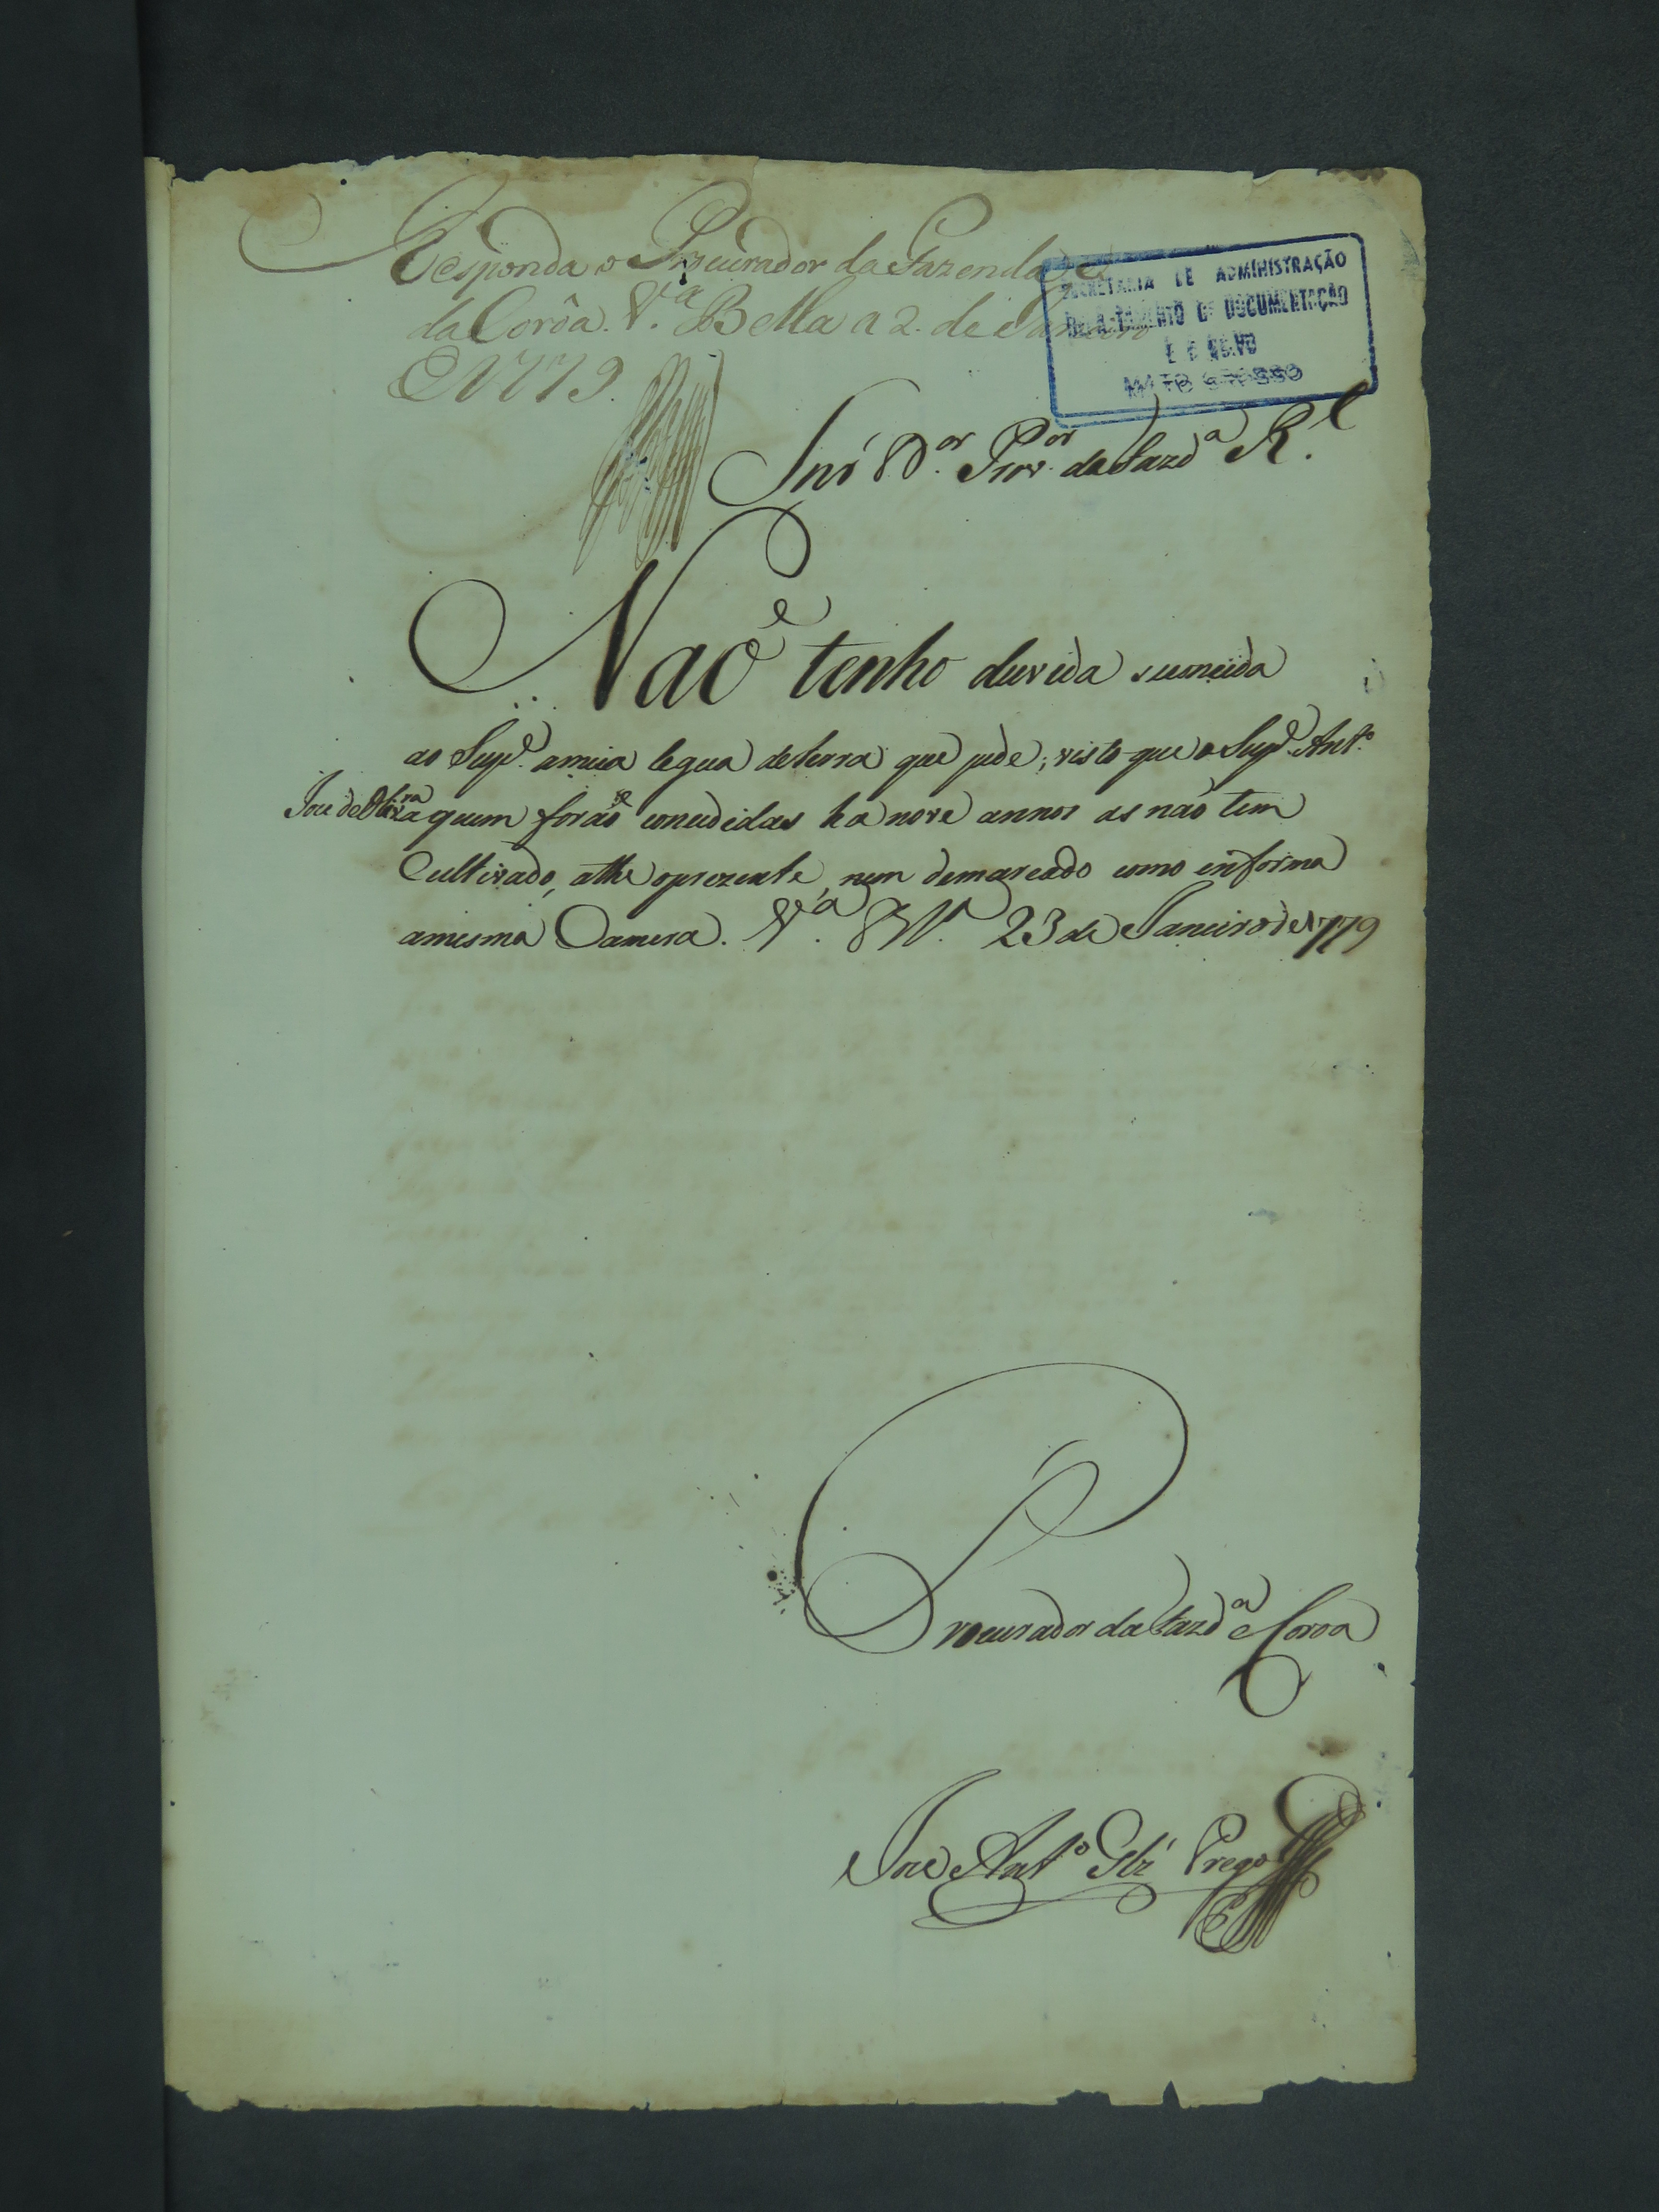 Responda o Procurador da Fazenda, e
da Corôa. V.ª Bella a 2. de Janeiro
de 1779.
SECRETARIA DE ADMINISTRAÇÃO
DEPARTAMENTO DE DOCUMENTAÇÃO
E ARQUIVO
MATO GROSSO
Snr̃ D.or Prov.or da Fazd.ª R.l
Naõ tenho duvida seconcida
ao Sup.e ameia legua deterra que pede; visto que o Sup.e Ant.º
Joze de Olivr.ª a quem foraõ concedidas ha nove annos as naõ tem
Cultivado, athe oprezente, nem demarcado como informa
amesma Camera. V.ª B.ª 23 de Janeiro de 1779
Procurador da Fazd.ª e Coroa
Joze Ant.º Glz̃ Prego